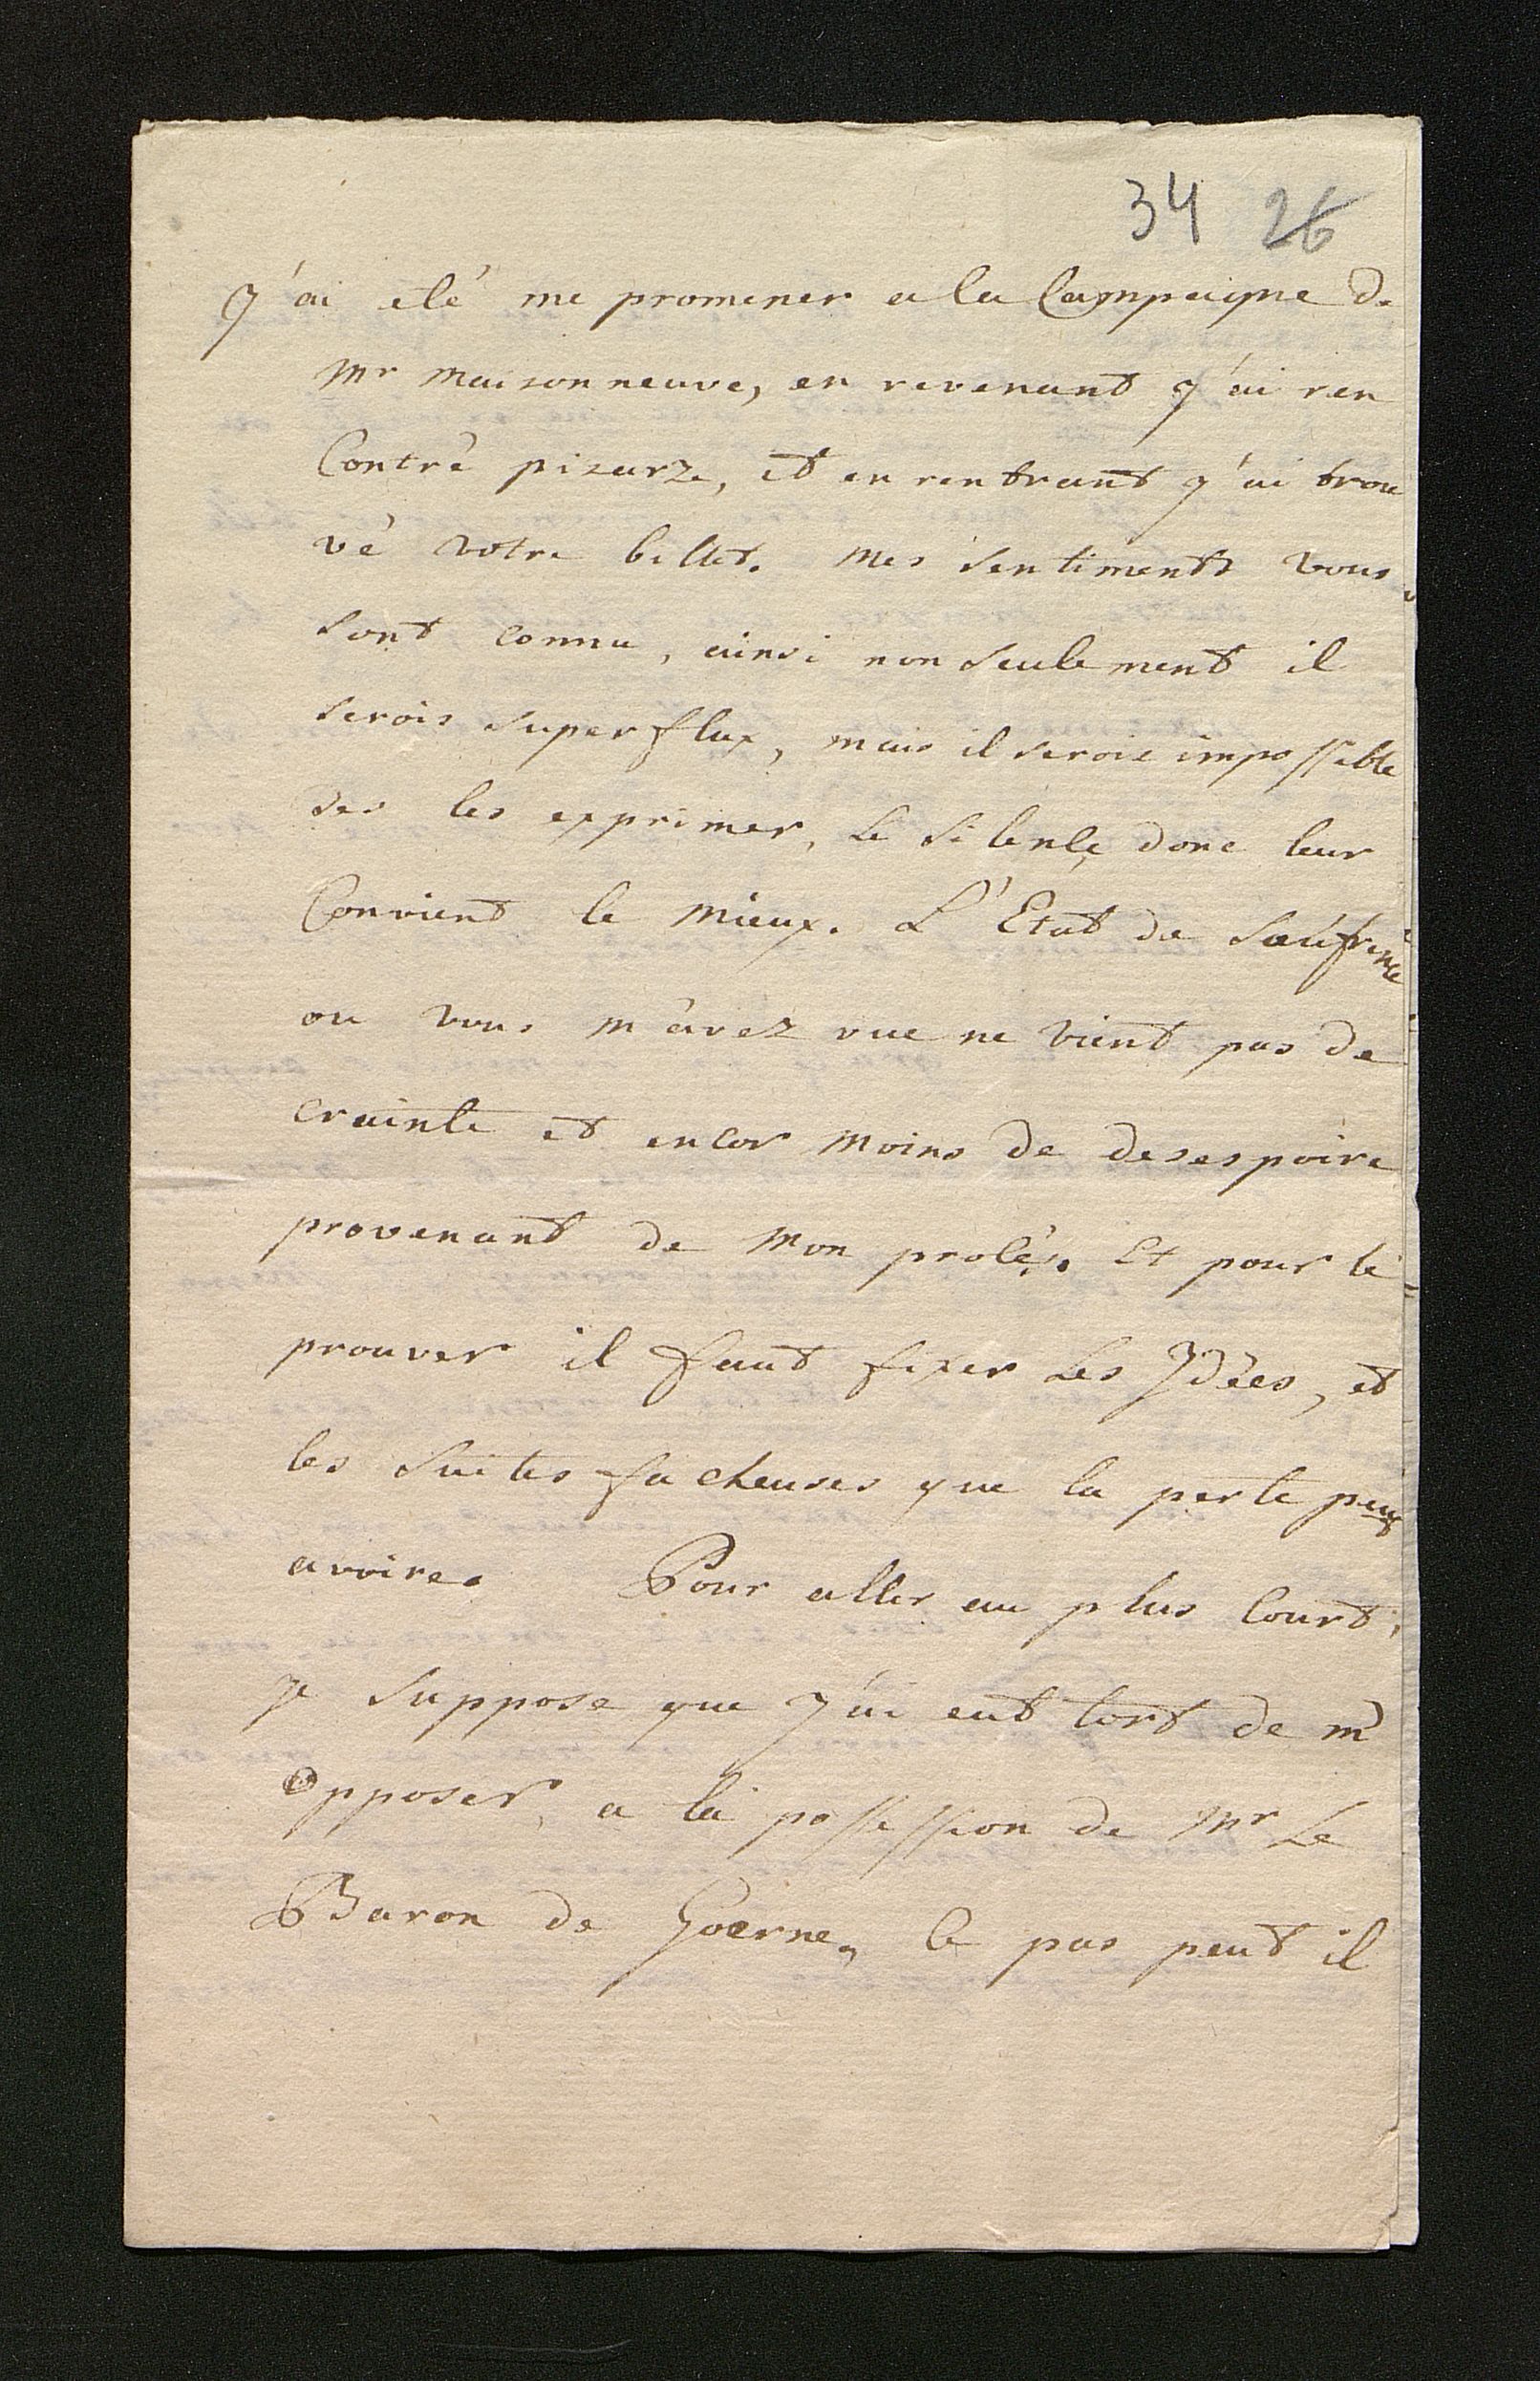 34 26
j'ai eté me promener a la Campaigne de
Mr maisonneuve, en revenant j'ai ren
Contré pisarze, et en rentrant j'ai trou
vé votre billet. Mes sentiments vous
sont connu, ainsi non seulement il
serois superflux, mais il serois impossible
des les exprimer, Le silençe donc leur
Convient le mieux. L'Etat de soufrence
ou vous m'avez vue ne vient pas de
crainte et encor moins de desespoire
provenant de Mon proçés. Et pour le
prouver il faut fixer Les Idées, et
les suites facheuses que la perte peux
avoire. Pour aller au plus Court,
je suppose que j'ai eut tort de m'
opposer a la possession de Mr Le
Baron de Goerne, Ce pas peut il